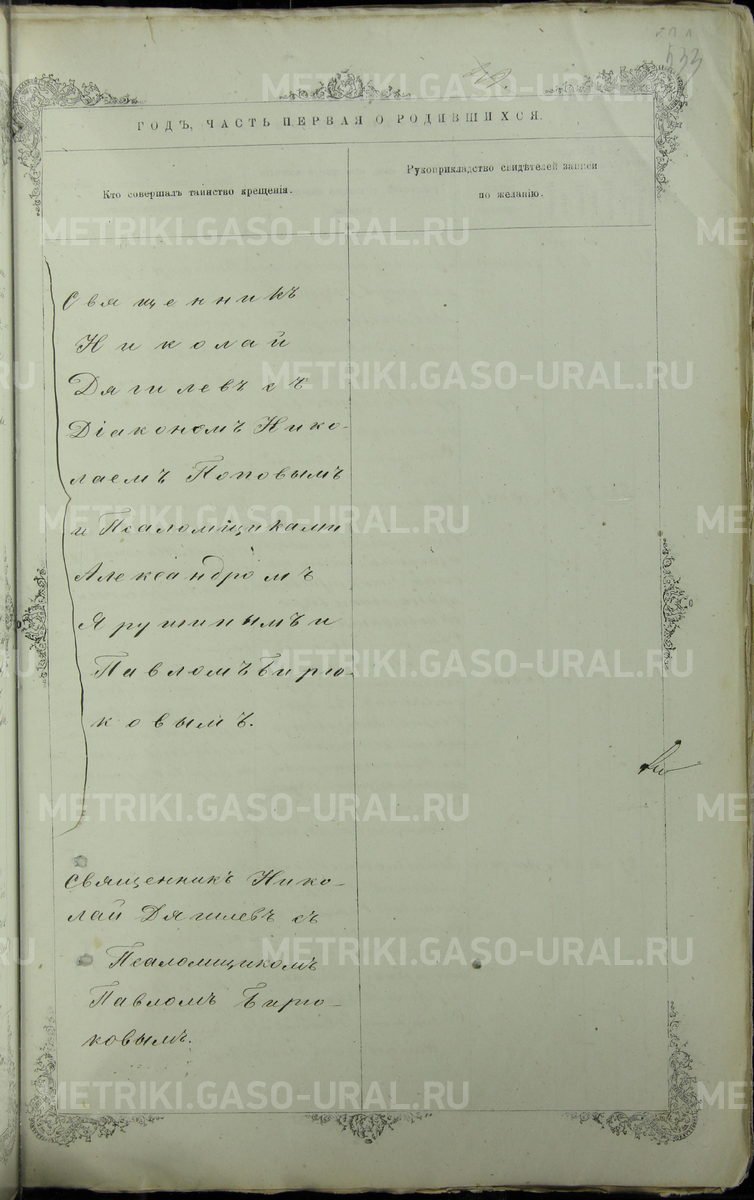 533
ГОДЪ, ЧАСТЬ ПЕРВАЯ О РОДИВШИХСЯ.
Кто совершалъ таинство крещенія.
Рукоприкладство свидѣтелей записи
по желанію.
Священникъ
Николай
Дягилевъ съ
Діакономъ Нико-
лаемъ Поповымъ
и Псаломщиками
Александромъ
Ярушинымъ и
Павломъ Бирю-
ковымъ.
Священникъ Нико-
лай Дягилевъ съ
Псаломщикомъ
Павломъ Бирю-
ковымъ.
METRIKI.GASO-URAL.RU